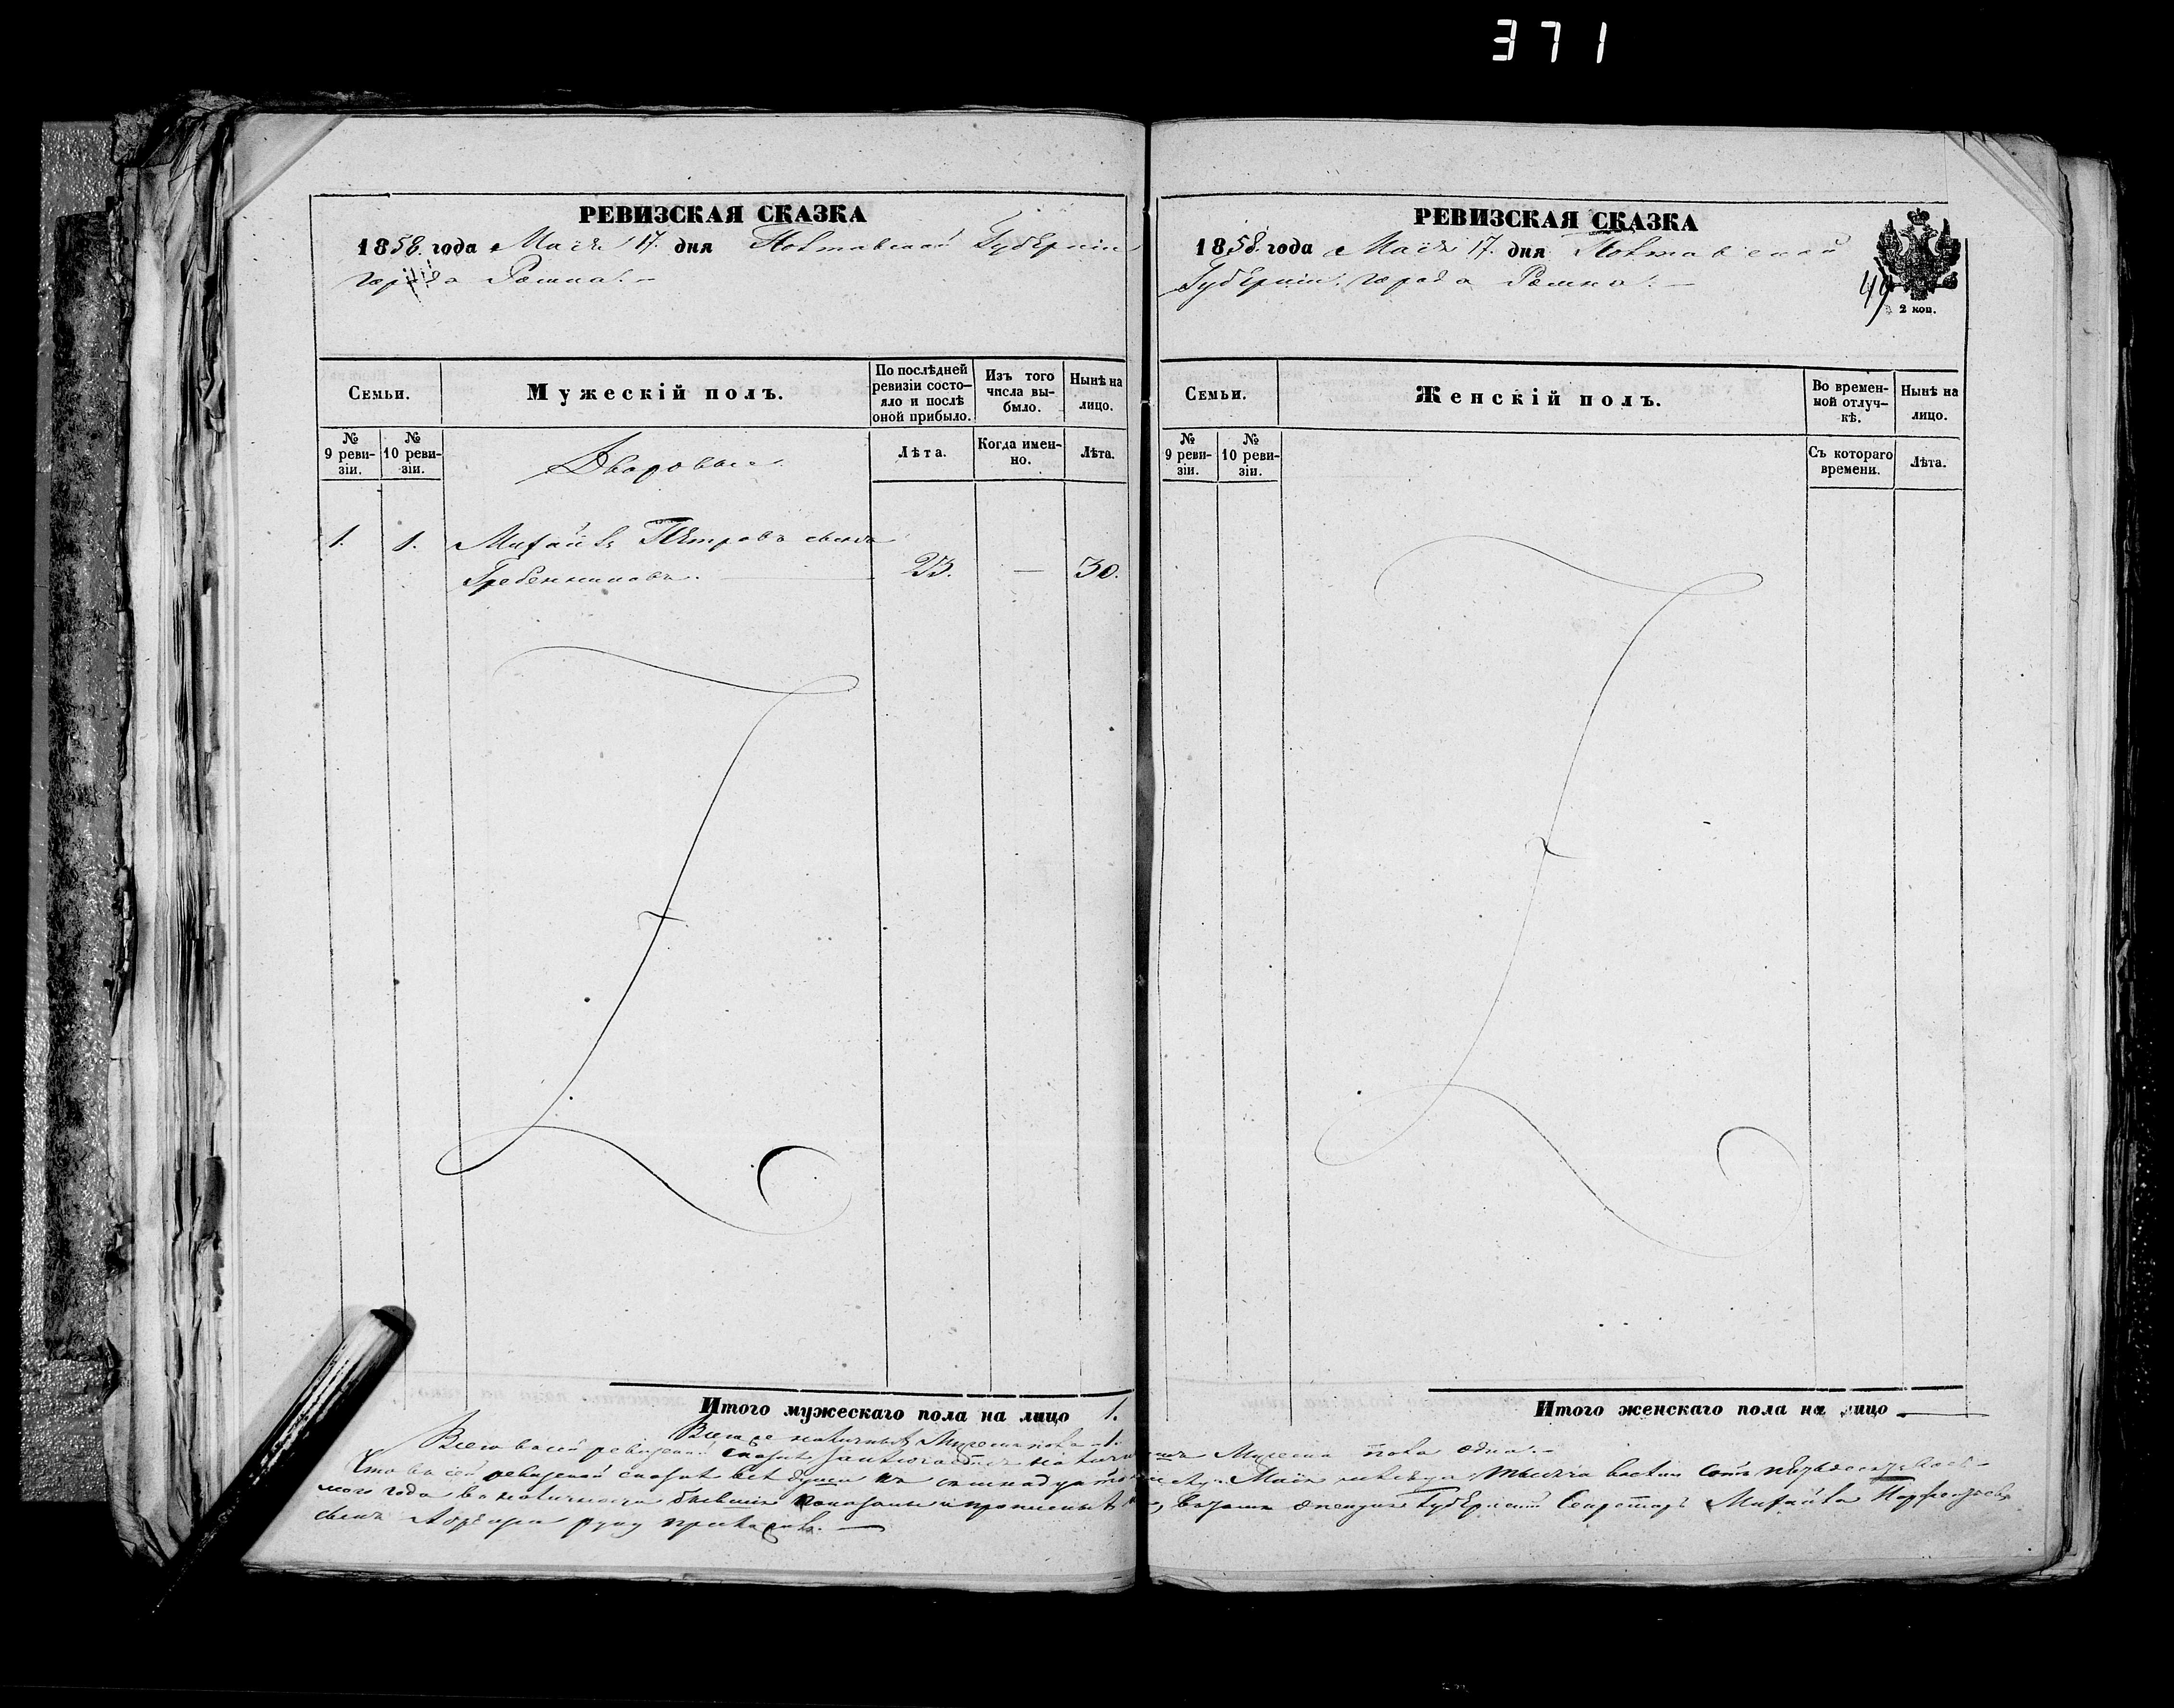 371
РЕВИЗСКАЯ СКАЗКА
1858. года Маія 17. дня Полтавской Губерніи
города Ромна. —
Семьи.
Мужескій полъ.
По послѣдней ревизіи состо-
яло и послѣ
оной прибыло.
Изъ того
числа вы-
было.
Нынѣ на
лицо.
№
9 реви-
зіи.
№
10 реви-
зіи.
Дворовые.
Лѣта.
Когда имен-
но.
Лѣта.
1.
1.
Михайла Петровъ сынъ
Гребенниковъ.
23.
—
30.
Итого мужескаго пола на лицо 1.
РЕВИЗСКАЯ СКАЗКА
1858. года Маія 17. дня Полтавской
Губерніи. города Ромна. —
49
2 коп.
Семьи.
Женскій полъ.
Во времен-
ной отлуч-
кѣ.
Нынѣ на
лицо.
№
9 реви-
зіи.
№
10 реви-
зіи.
Съ котораго
времени.
Лѣта.
Итого женскаго пола на лицо —
Всего наличныхъ Мужеска пола 1.
Всего в сей ревизской сказкѣ заключается наличныхъ Мужеска пола одна. —
Что в сей ревизской сказкѣ всѣ души къ семнадцатому числу Маія мѣсяца тысяча восемь сотъ пятьдесятъ вось-
мого года в наличности бывшіе показаны и прописныхъ Губернскій Секретарь Михайла
сынъ руку приложилъ. —